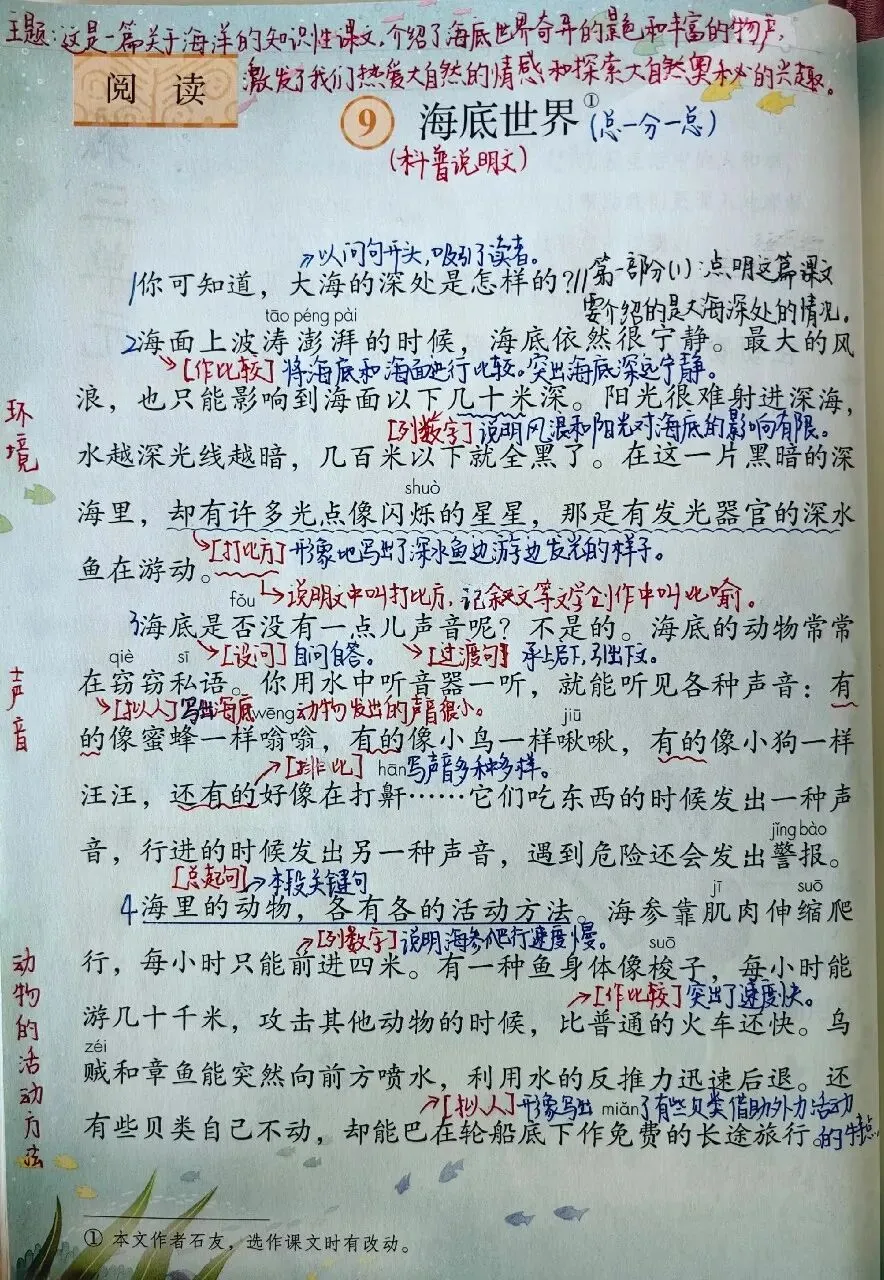 主题：这是一篇关于海洋的知识性课文，介绍了海底世界奇异的景色和丰富的物产，
激发了我们热爱大自然的情感和探索大自然奥秘的兴趣。
阅 读
9 海底世界① (总一分一总)
(科普说明文)
以问句开头，吸引了读者。
1你可知道，大海的深处是怎样的？//第一部分(1)：点明这篇课文
要介绍的是大海深处的情况。
tāo péng pài
2海面上波涛澎湃的时候，海底依然很宁静。最大的风
[作比较] 将海底和海面进行比较。突出海底深远宁静。
浪，也只能影响到海面以下几十米深。阳光很难射进深海，
环境
[列数字] 说明风浪和阳光对海底的影响有限。
水越深光线越暗，几百米以下就全黑了。在这一片黑暗的深
shuò
海里，却有许多光点像闪烁的星星，那是有发光器官的深水
[打比方] 形象地写出了深水鱼边游边发光的样子。
鱼在游动。
说明文中叫打比方，记叙文等文学创作中叫比喻。
fǒu
3海底是否没有一点儿声音呢？不是的。海底的动物常常
[设问] 自问自答。 [过渡句] 承上启下，引出下文。
qiè sī
在窃窃私语。你用水中听音器一听，就能听见各种声音：有
声音
[拟人] 写出海底动物发出的声音很小。
wēng jiū
的像蜜蜂一样嗡嗡，有的像小鸟一样啾啾，有的像小狗一样
[排比] 写声音多种多样。
hān
汪汪，还有的好像在打鼾……它们吃东西的时候发出一种声
jǐng bào
音，行进的时候发出另一种声音，遇到危险还会发出警报。
[总起句] 本段关键句
jī suō
4海里的动物，各有各的活动方法。海参靠肌肉伸缩爬
[列数字] 说明海参爬行速度慢。
suō
行，每小时只能前进四米。有一种鱼身体像梭子，每小时能
动物的活动方法
[作比较] 突出了速度快。
游几十千米，攻击其他动物的时候，比普通的火车还快。乌
zéi
贼和章鱼能突然向前方喷水，利用水的反推力迅速后退。还
[拟人] 形象写出了有些贝类借助外力活动
miǎn
有些贝类自己不动，却能巴在轮船底下作免费的长途旅行。的特点。
① 本文作者石友，选作课文时有改动。